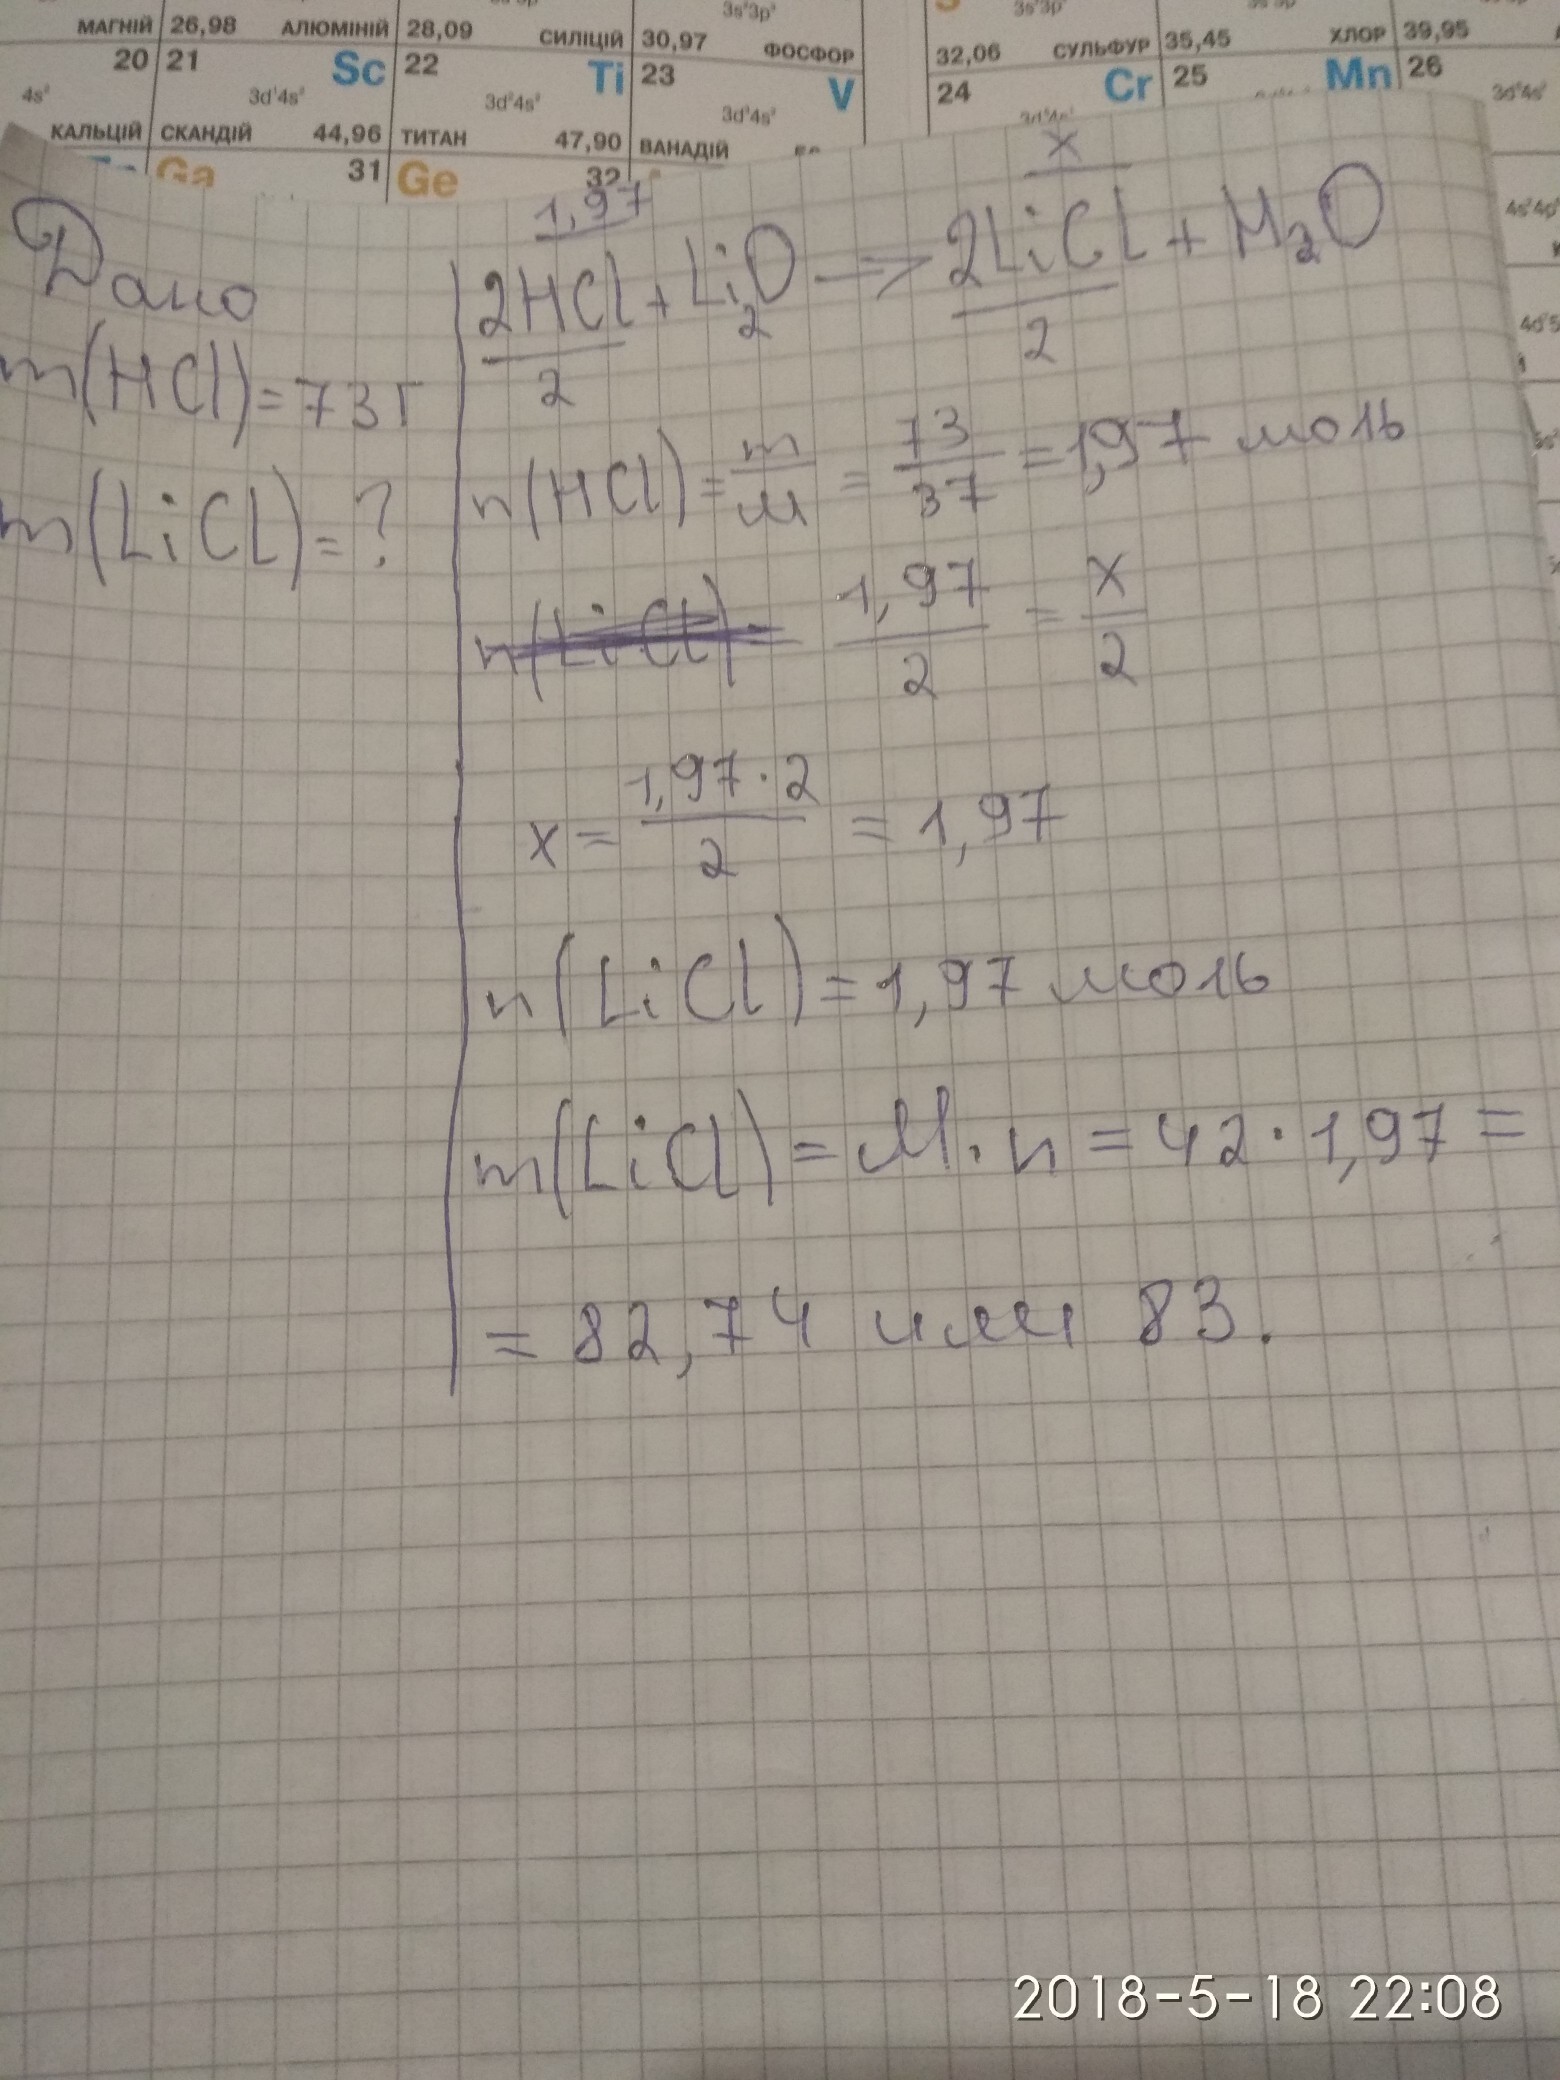 3s²3p¹
3s²3p³
МАГНІЙ 26,98 АЛЮМІНІЙ 28,09 СИЛІЦІЙ 30,97 ФОСФОР 32,06 СУЛЬФУР 35,45 ХЛОР 39,95
20 21 Sc 22 Ti 23 V 24 Cr 25 Mn 26
4s² 3d¹4s² 3d²4s² 3d³4s² 3d⁶4s²
КАЛЬЦІЙ СКАНДІЙ 44,96 ТИТАН 47,90 ВАНАДІЙ
Ga 31 Ge 32
Дано
m(HCl)=73г
m(LiCl)=?
1,97 x
2HCl + Li₂O —> 2LiCl + H₂O
2 2
n(HCl) = m/M = 73/37 = 1,97 моль
1,97/2 = x/2
x = 1,97·2/2 = 1,97
n(LiCl) = 1,97 моль
m(LiCl) = M·n = 42·1,97 =
= 82,74 или 83.
2018-5-18 22:08